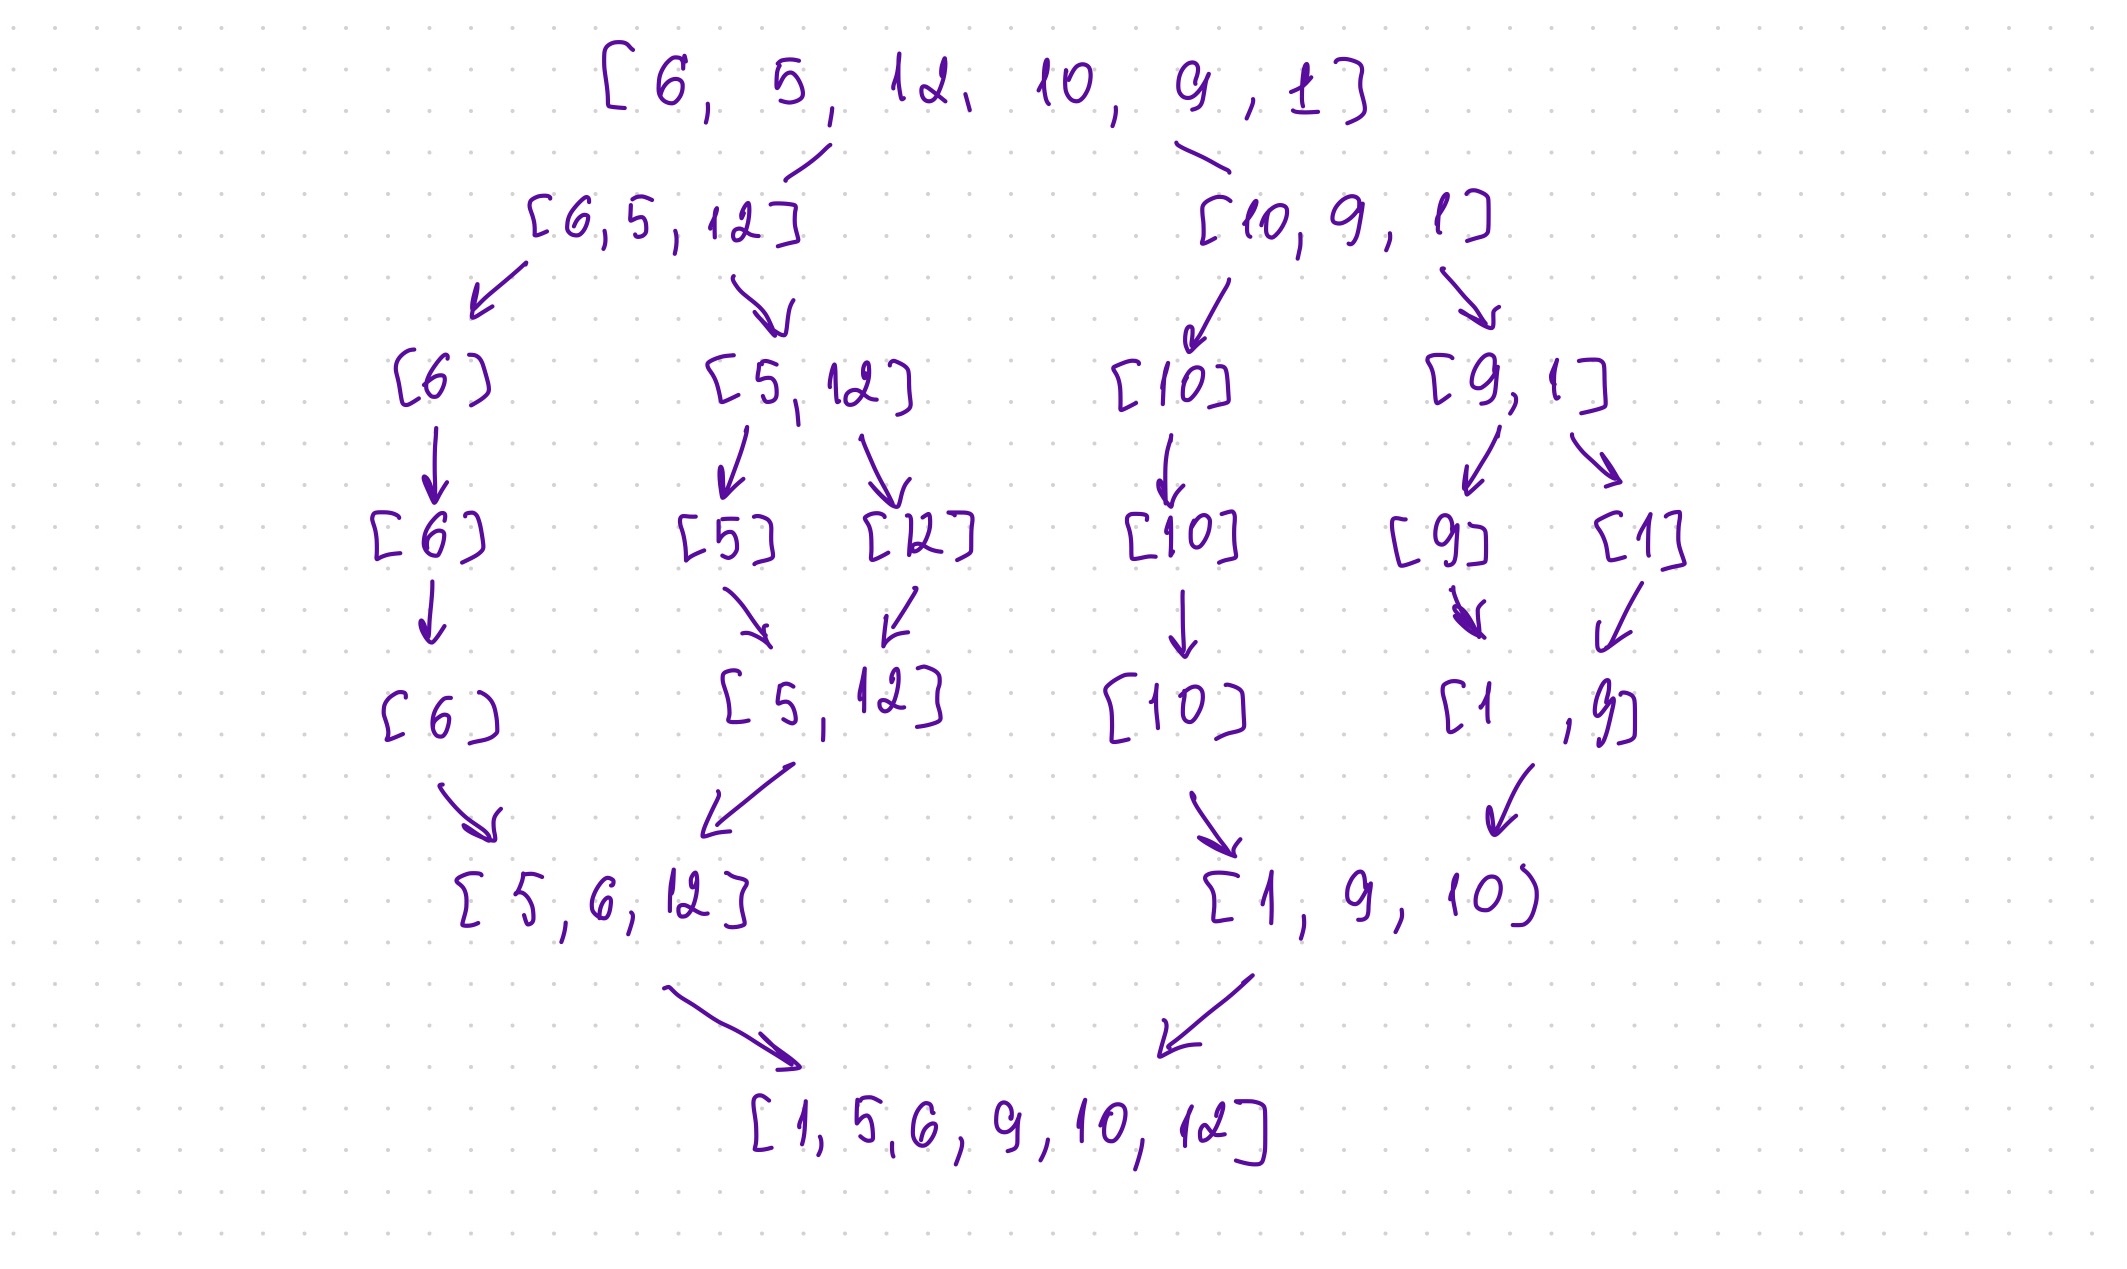 [6, 5, 12, 10, 9, 1]
[6, 5, 12] [10, 9, 1]
[6] [5, 12] [10] [9, 1]
[6] [5] [12] [10] [9] [1]
[6] [5, 12] [10] [1, 9]
[5, 6, 12] [1, 9, 10)
[1, 5, 6, 9, 10, 12]